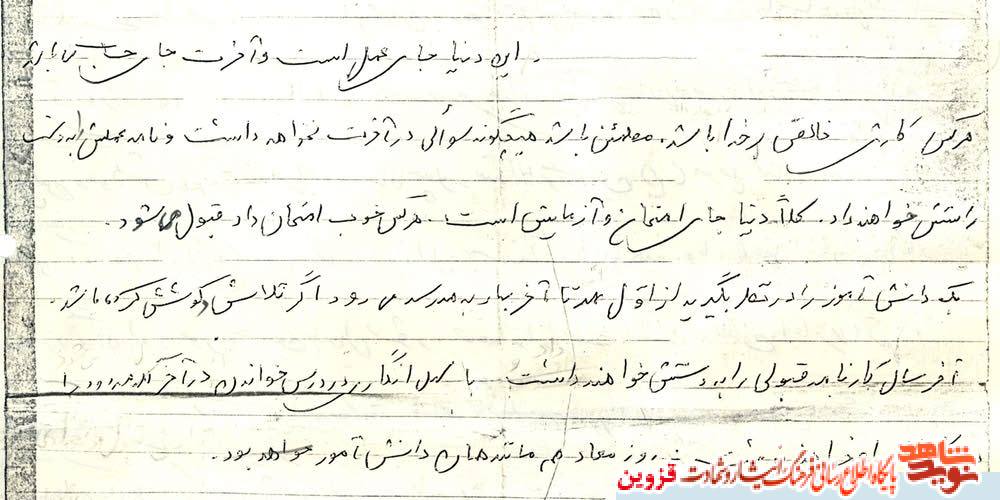 . این دنیا جای عمل است و آخرت جای حساب می باشد
هرکس کارش خالص برخدا باشد. مطمئن باشد هیچگونه سوألی در آخرت نخواهد داشت و نامه عملش را بدست
راستش خواهند داد. کلاً دنیا جای امتحان و آزمایش است. هرکس خوب امتحان داد قبول می شود.
یک دانش آموز را در نظر بگیرید از اول مهر تا آخر بهار به مدرسه می رود اگر تلاش و کوشش کرده باشد.
آخر سال کارنامه قبولی را به دستش خواهند داشت با سهل انگاری در درس خواندن در آخر
خواهند روز معاد هم مانند همان دانش آموز خواهد بود.
نوید شاهد
پایگاه اطلاع رسانی فرهنگ ایثار و شهادت قزوین